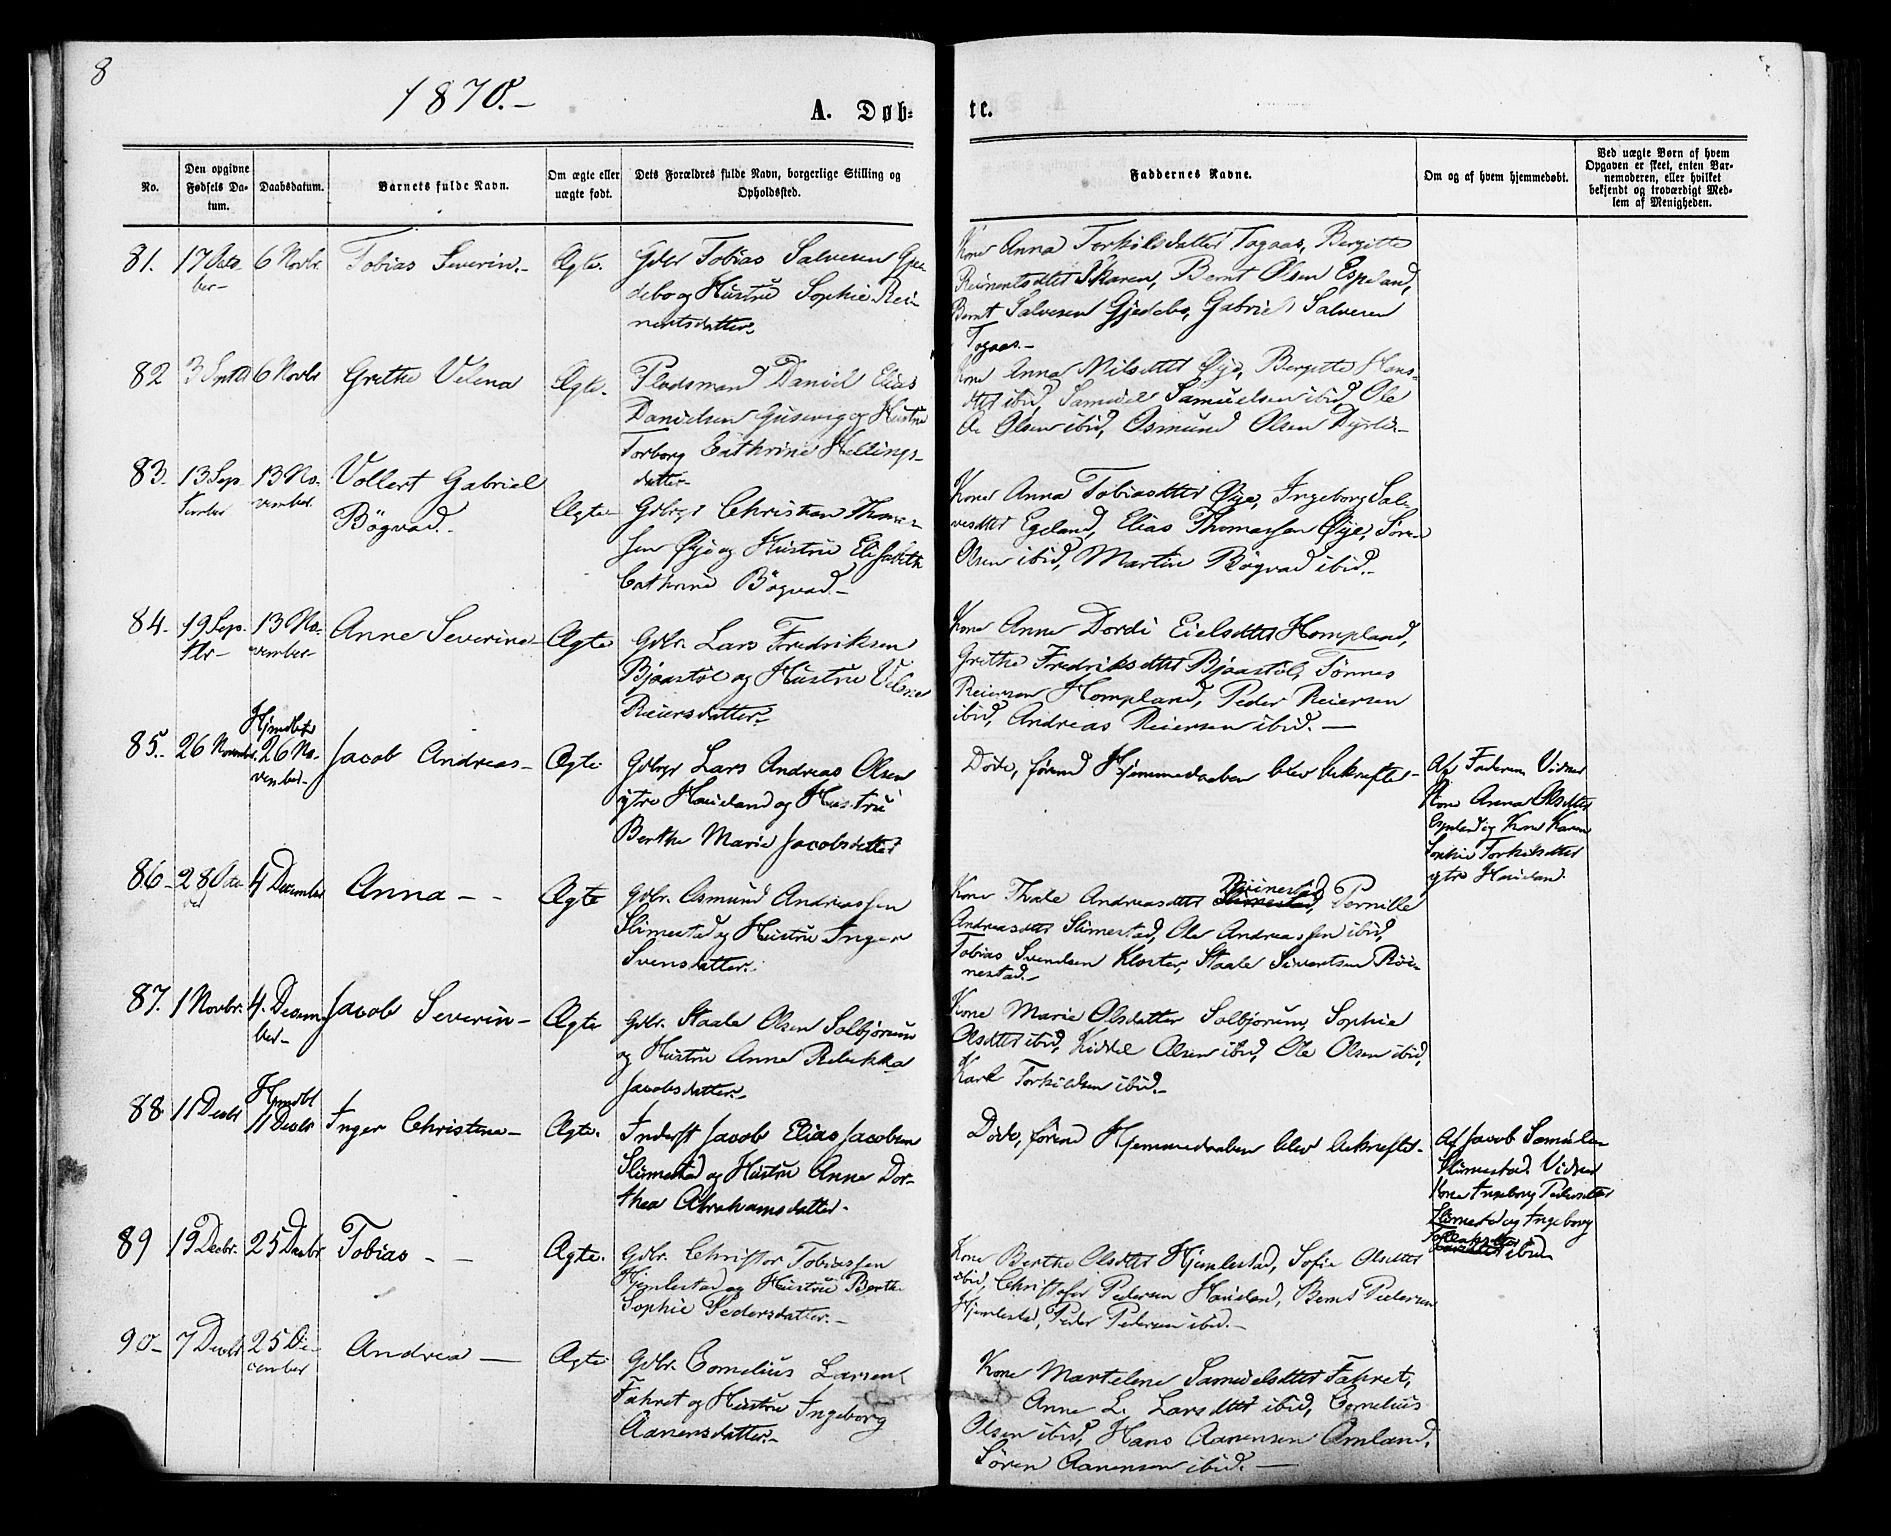 8
1870.-
A. Døb-
te.
No.
Den opgivne
Fødsels Da-
tum.
Daabsdatum.
Barnets fulde Navn.
Om ægte eller
uægte født.
Dets Forældres fulde Navn, borgerlige Stilling og
Opholdssted.
Faddernes Navne.
Om og af hvem hjemmedøbt.
Ved uægte Børn af hvem
Opgaven er skeet, enten Bar-
nemoderen, eller hvilket
bekjendt og troværdigt Med-
lem af Menigheden.
81. 17 Octo- 6 Novbr. Tobias Severin.- Ægte. Gdbr Tobias Salvesen Gje-
ber-
debo og Hustru Sophie Rei-
nertsdatter.
Kone Anna Torkilsdatter Togaas, Bergitte
Reinertsdtter Skaren, Bernt Olsen Espeland,
Bernt Salvesen Gjedebo, Gabriel Salvesen
Togaas.-
82 3 Septbr 6 Novbr Grethe Velena Ægte. Pladsmand Daniel Elias
Danielsen Gusevig og Hustru
Torborg Cathrine Hellings-
datter
Kone Anna Nilsdtter Øye, Bergitte Hans-
dtter ibid, Samuel Samuelsen ibid, Ole
Olsen ibid, Osmund Olsen Dyrli.-
83. 13 Sep- 13 No- Vollert Gabriel
tember vember
Bögvad.- Ægte Gdbrgr Christian Thomas-
sen Øye og Hustru Elisabeth
Cathrine Bögvad.-
Kone Anna Tobiasdtter Øye, Ingeborg Sal-
vesdtter Egeland, Elias Thomassen Øye, Sören
Olsen ibid, Martin Bögvad ibid.-
84. 19 Sep- 13 No- Anne Severine Ægte Gdbr. Lars Fredriksen
tbr- vember-
Bjaastöl og Hustru Velene
Reiersdatter.-
Kone Anne Dordi Eielsdtter Hompland,
Grethe Fredriksdtter Bjaastöl, Tönnes
Reiersen Hompland, Peder Reiersen
ibid, Andreas Reiersen ibid.-
Hjmdbt
85. 26 November 26 No- Jacob Andreas- Ægte Gdbrgr Lars Andreas Olsen
vember.
ytre Haueland og Hustru
Berthe Marie Jacobsdatter
Döde, förend Hjemmedaaben blev bekræftet-
Af Faderen Vidner
Kone Anna Olsdtter
Espeland og Kone Karen
Sophie Torkilsdtter
ytre Haueland.
86- 28 Octo- 4 December Anna - - Ægte Gdbr. Osmund Andreassen
Slimestad og Hustru Inger
Svensdatter.
Kone Thale Andreasdtter Reinestad, Pernille
Andreasdtter Slimestad, Ole Andreassen ibid,
Tobias Svendsen Kloster, Staale Sivertsen Rei-
nestad.-
87. 1 Novbr. 4. Decem- Jacob Severin- Ægte Gdbr. Staale Olsen Solbjorum
ber-
og Hustru Anne Rebekka
Jacobsdatter.-
Kone Marie Olsdatter Solbjorum, Sophie
Olsdtter ibid, Kiddel Olsen ibid, Ole Olsen ibid,
Karl Torkildsen ibid.-
Hjmdbt
88 11 Decbr 11 Decbr Inger Christine- Ægte. Inderst Jacob Elias Jacobsen
Slimestad og Hustru Anne Dor-
thea Abrahamsdatter.
Döde, förend Hjemmedaaben blev bekræftet-
Af Jacob Samuelsen
Slimestad. Vidner
Kone Ingeborg Pedersdtter
Slimestad og Ingeborg
ibid
89 19 Decbr. 25 Decbr. Tobias - - Ægte. Gdbr. Christofer Tobiassen
Hjemlestad og Hustru Berthe
Sophie Pedersdatter.-
Kone Berthe Olsdtter Hjemlestad, Sofie Olsdtter
ibid, Christofer Pedersen Haueland, Bernt Pedersen
Hjemlestad, Peder Pedersen ibid.-
90- 7 Decbr 25 De- Andrea- Ægte Gdbr. Cornelius Larsen
cember
Fahret og Hustru Ingeborg
Aanensdatter.-
Kone Martelene Samuelsdtter Fahret,
Anne L. Larsdtter ibid, Cornelius
Olsen ibid, Hans Aanensen Omland,
Sören Aanensen ibid.-